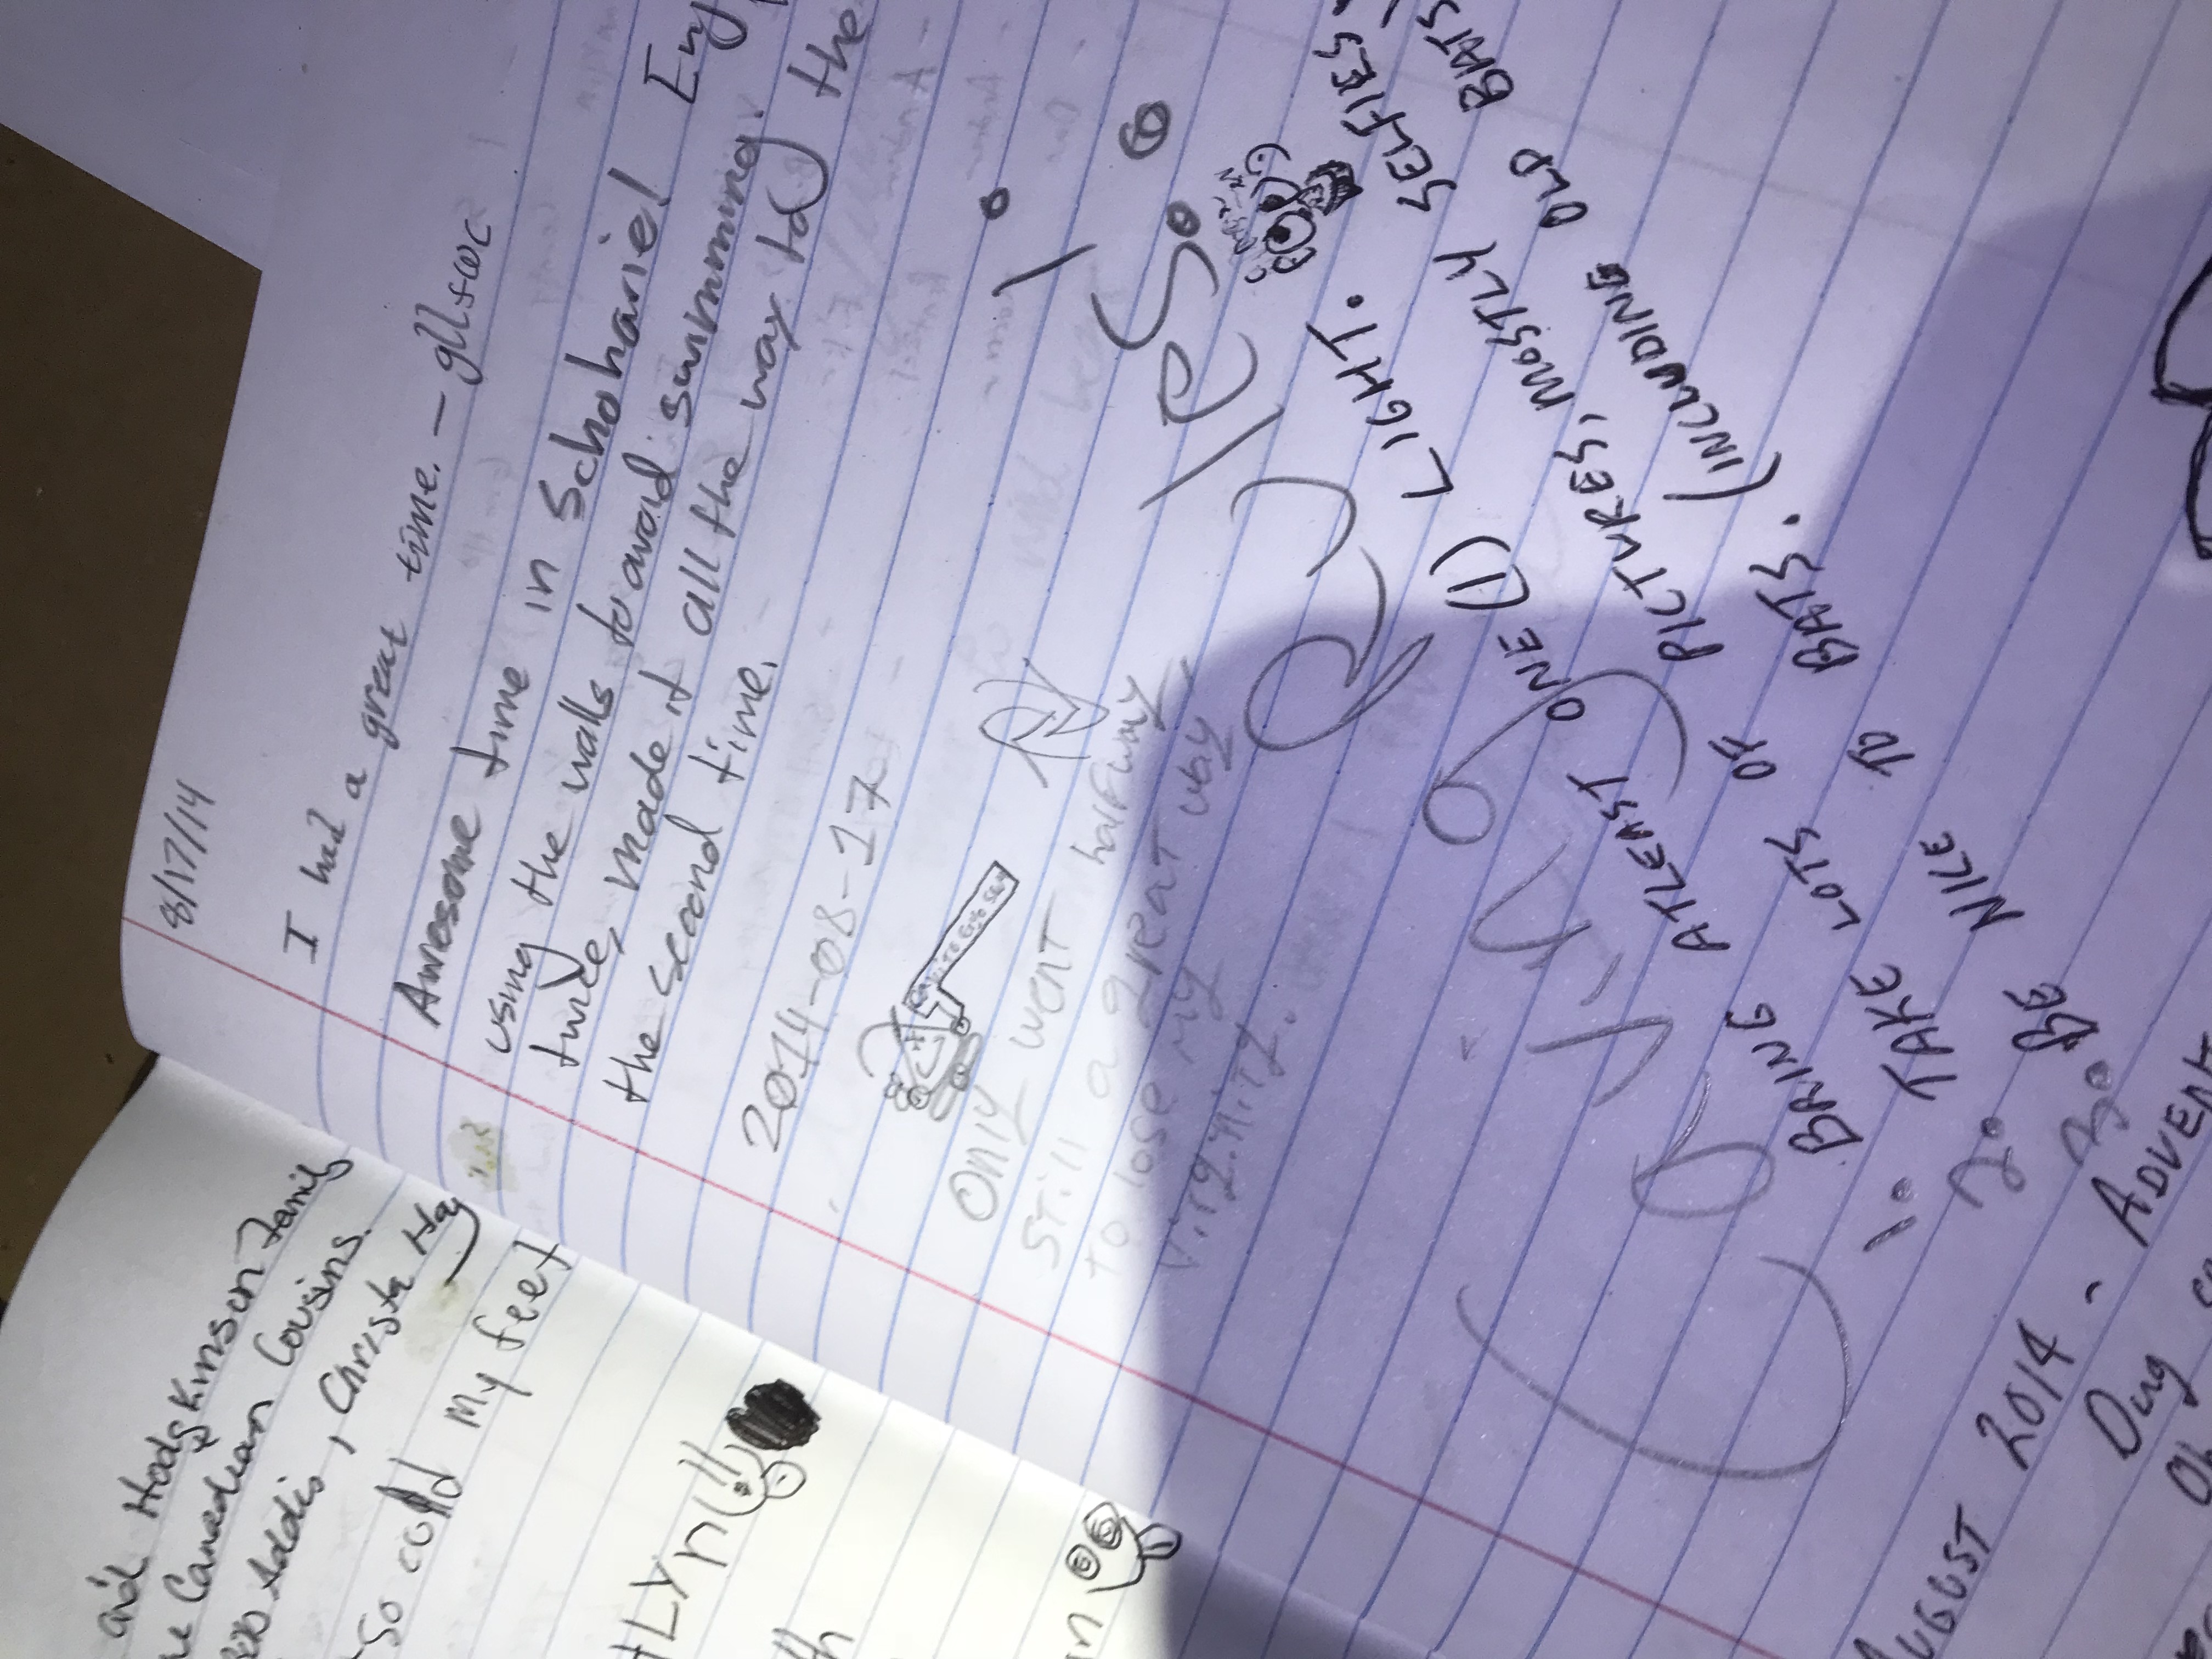 and Hodgkinson Family
Canadian Cousins.
Addis, Christa Hay
So cold my feet
8/17/14
I had a great time. –
Awesome time in Schoharie!
using the walls to avoid swimming.
twice, made it all the way to the
the second time.
2014-08-17
Only went halfway
Still a great way
to lose my
virginity.
Caving Rules:
1. BRING ATLEAST ONE (1) LIGHT.
2. TAKE LOTS OF PICTURES, MOSTLY SELFIES
3. BE NICE TO BATS. (INCLUDING OLD BATS
AUGUST 2014 - ADVENT